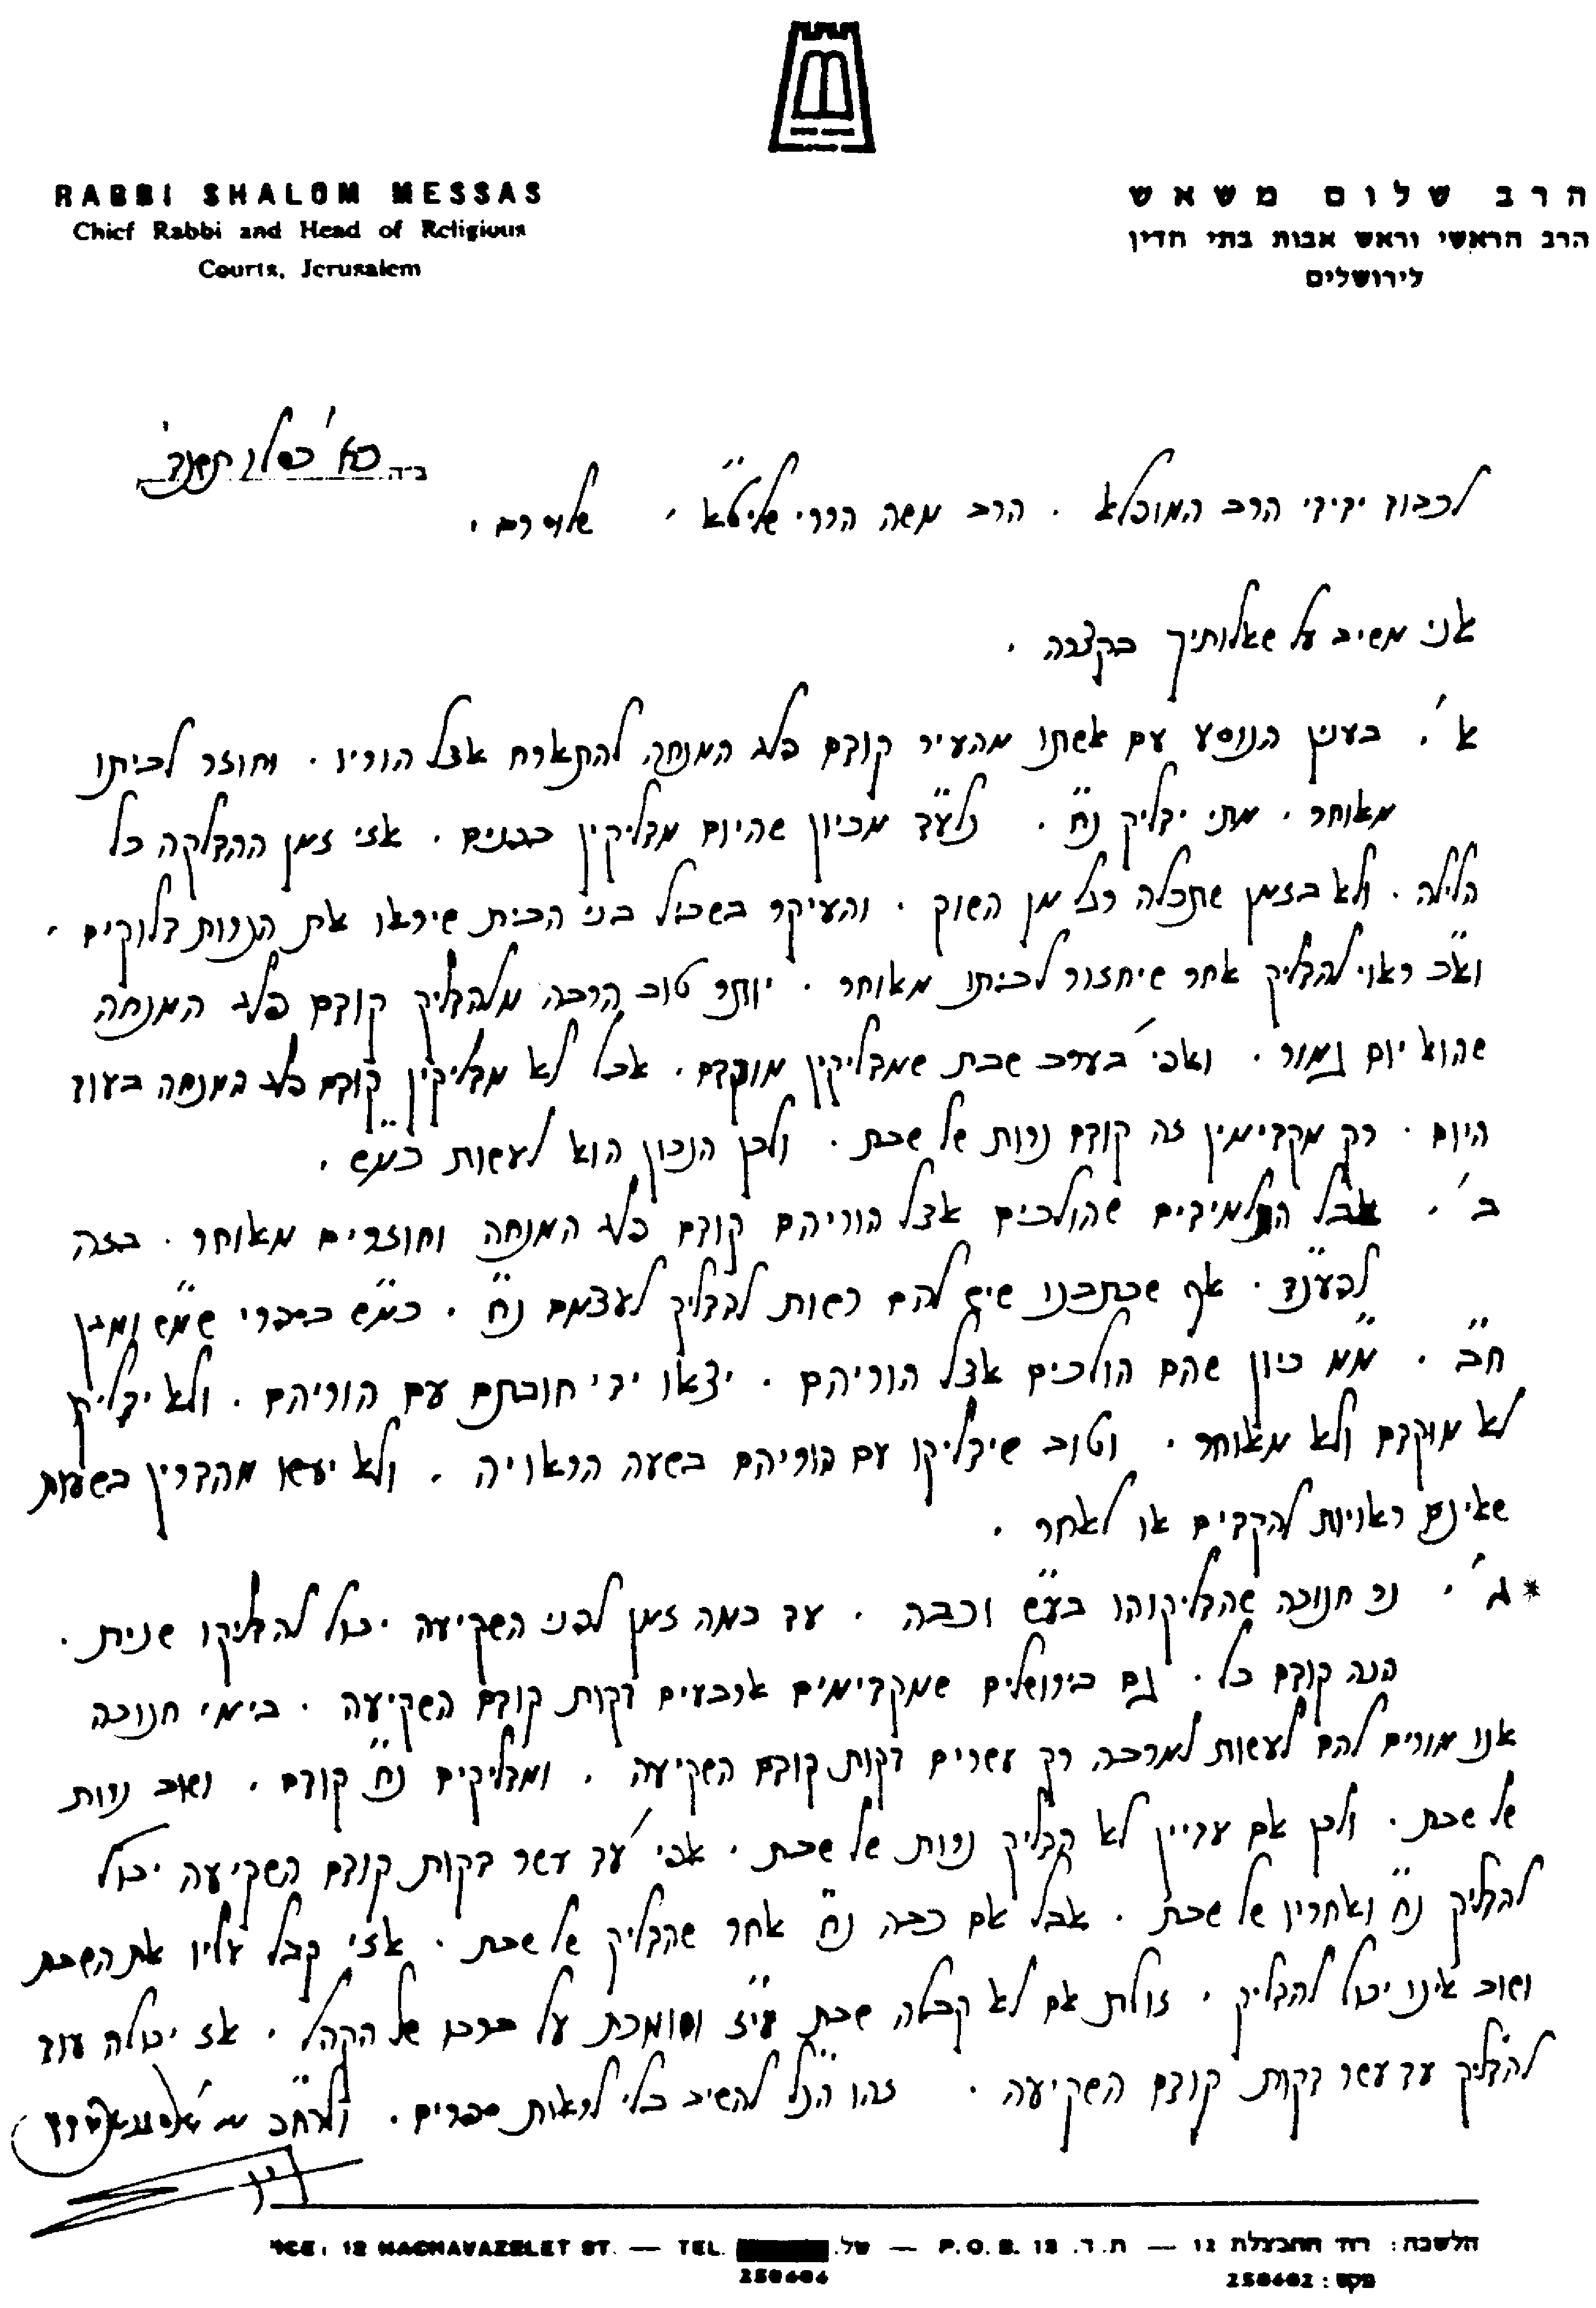 RABBI SHALOM MESSAS
Chief Rabbi and Head of Religious
Courts, Jerusalem
הרב שלום משאש
הרב הראשי וראש אבות בתי הדין
לירושלים
ב״ה כא' כסלו תשנד
לכבוד ידידי הרב המופלא . הרב משה הררי שליט״א , שלו' רב .
אני משיב על שאלותיך בקצרה .
א' . בענין הנוסע עם אשתו מהעיר קודם פלג המנחה להתארח אצל הוריו . וחוזר לביתו
מאוחר . מתי ידליק נ״ח . נלע״ד מכיון שהיום מדליקין בפנים . אזי זמן ההדלקה כל
הלילה . ולא בזמן שתכלה רגל מן השוק . והעיקר בשביל בני הבית שיראו את הנרות דלוקים .
וא״כ ראוי להדליק אחר שיחזור לביתו מאוחר . יותר טוב הרבה מלהדליק קודם פלג המנחה
שהוא יום גמור . ואפי' בערב שבת שמדליקין מוקדם . אבל לא מדליקין קודם פלג המנחה בעוד
היום . רק מקדימין זה קודם נרות של שבת . ולכן הנכון הוא לעשות כמ״ש .
ב' . אבל התלמידים שהולכים אצל הוריהם קודם פלג המנחה וחוזרים מאוחר . בזה
לפענ״ד . אף שכתבנו שיש להם רשות להדליק לעצמם נ״ח . כמ״ש בספרי שמ״ש ומגן
ח״ב . מ״מ כיון שהם הולכים אצל הוריהם . יצאו ידי חובתם עם הוריהם . ולא ידליק
לא מוקדם ולא מאוחר . וטוב שידליקו עם הוריהם בשעה הראויה . ולא יעשו מהדרין בשעות
שאינם ראויות להקדים או לאחר .
* ג' . נר חנוכה שהדליקוהו בע״ש וכבה . עד כמה זמן לפני השקיעה יכול להדליקו שנית .
הנה קודם כל . גם בירושלים שמקדימים ארבעים דקות קודם השקיעה . בימי חנוכה
אנו מורים להם לעשות למרבה רק עשרים דקות קודם השקיעה . ומדליקים נ״ח קודם . ושוב נרות
של שבת . ולכן אם עדיין לא הדליק נרות של שבת . אפי' עד עשר דקות קודם השקיעה יכול
להדליק נ״ח ואחריו של שבת . אבל אם כבה נ״ח אחר שהדליק של שבת . אזי קבל עליו את השבת
ושוב אינו יכול להדליק . זולת אם לא קבלה שבת עי״ז וסומכת על ברכו של הקהל . אז יכולה עוד
להדליק עד עשר דקות קודם השקיעה . זהו הנ״ל להשיב בלי לראות ספרים .
OFFICE: 12 HACHAVAZELET ST. — TEL. של. — P.O.B. 12 ת.ד. — הלשכה: רח' החבצלת 12
250404
פקס: 250402